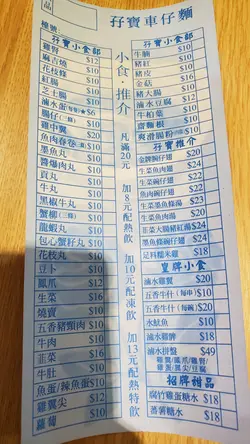 品
孖寶車仔麵
檯號:
孖寶小食部
雞腎 $12
麻吉燒 $10
花枝條 $10
紅腸 $10
芝士腸 $10
滷水蛋(每隻)★$6
腸仔(三條) $10
雞中翼 $20
魚肉春卷 $10
墨魚丸 $10
醬爆肉丸 $10
貢丸 $10
牛丸 $10
黑椒牛丸 $10
蟹柳(三條) $10
龍蝦丸 $10
包心蟹籽丸 $10
花枝丸 $10
豆卜 $10
鳳爪 $12
生菜 $16
燒賣 $10
五香豬頸肉 $10
牛肉 $10
韮菜 $16
牛肚 $10
魚蛋/辣魚蛋 $10
雞翼尖 $12
蘿蔔 $10
小食·推介
凡滿20元
加8元配熱飲
加10元配凍飲
加13元配特飲
孖寶小食部
牛腩 $10
豬紅 $10
豬皮 $10
金菇 $16
豬大腸 $10
滷水豆腐 $12
牛柏葉 $10
齋麵根 $10
爽滑腸粉 $10
孖寶推介
金牌碗仔翅 $20
生菜碗仔翅 $22
魚肉碗仔翅 $22
生菜魚肉湯 $20
韮菜大腸豬紅湯 $24
墨魚條碗仔翅 $24
足料糯米雞 $18
皇牌小食
滷水雞翼 $20
五香牛什(每串) $10
五香牛什(每碗) $20
水魷魚 $10
滷水雞髀 $18
滷水拼盤 $49
招牌甜品
腐竹雞蛋糖水 $18
蕃薯糖水 $18